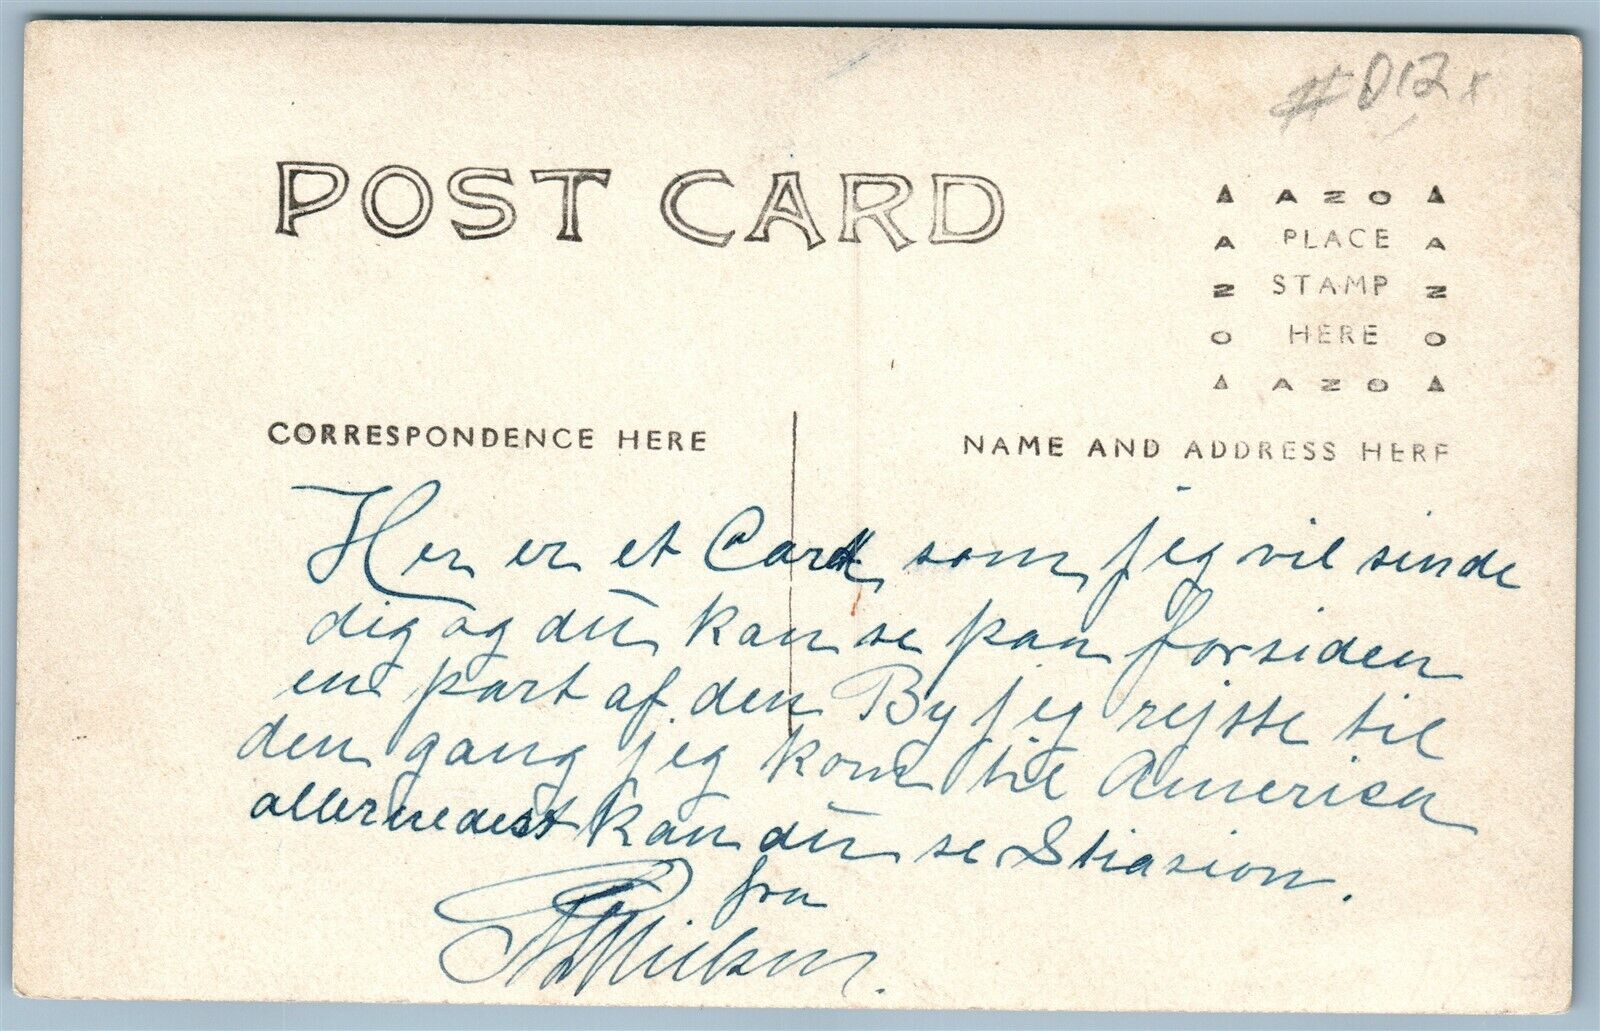 #D12x
POST CARD
AZO
PLACE
STAMP
HERE
AZO
AZO
AZO
CORRESPONDENCE HERE
NAME AND ADDRESS HERE
Her er et Card som jeg vil sinde
dig og dū kan se paa forsiden
en part af den By jeg rejste til
den gang jeg kom til America
allernedest kan dū se Stiasion.
fra
Nielsen.